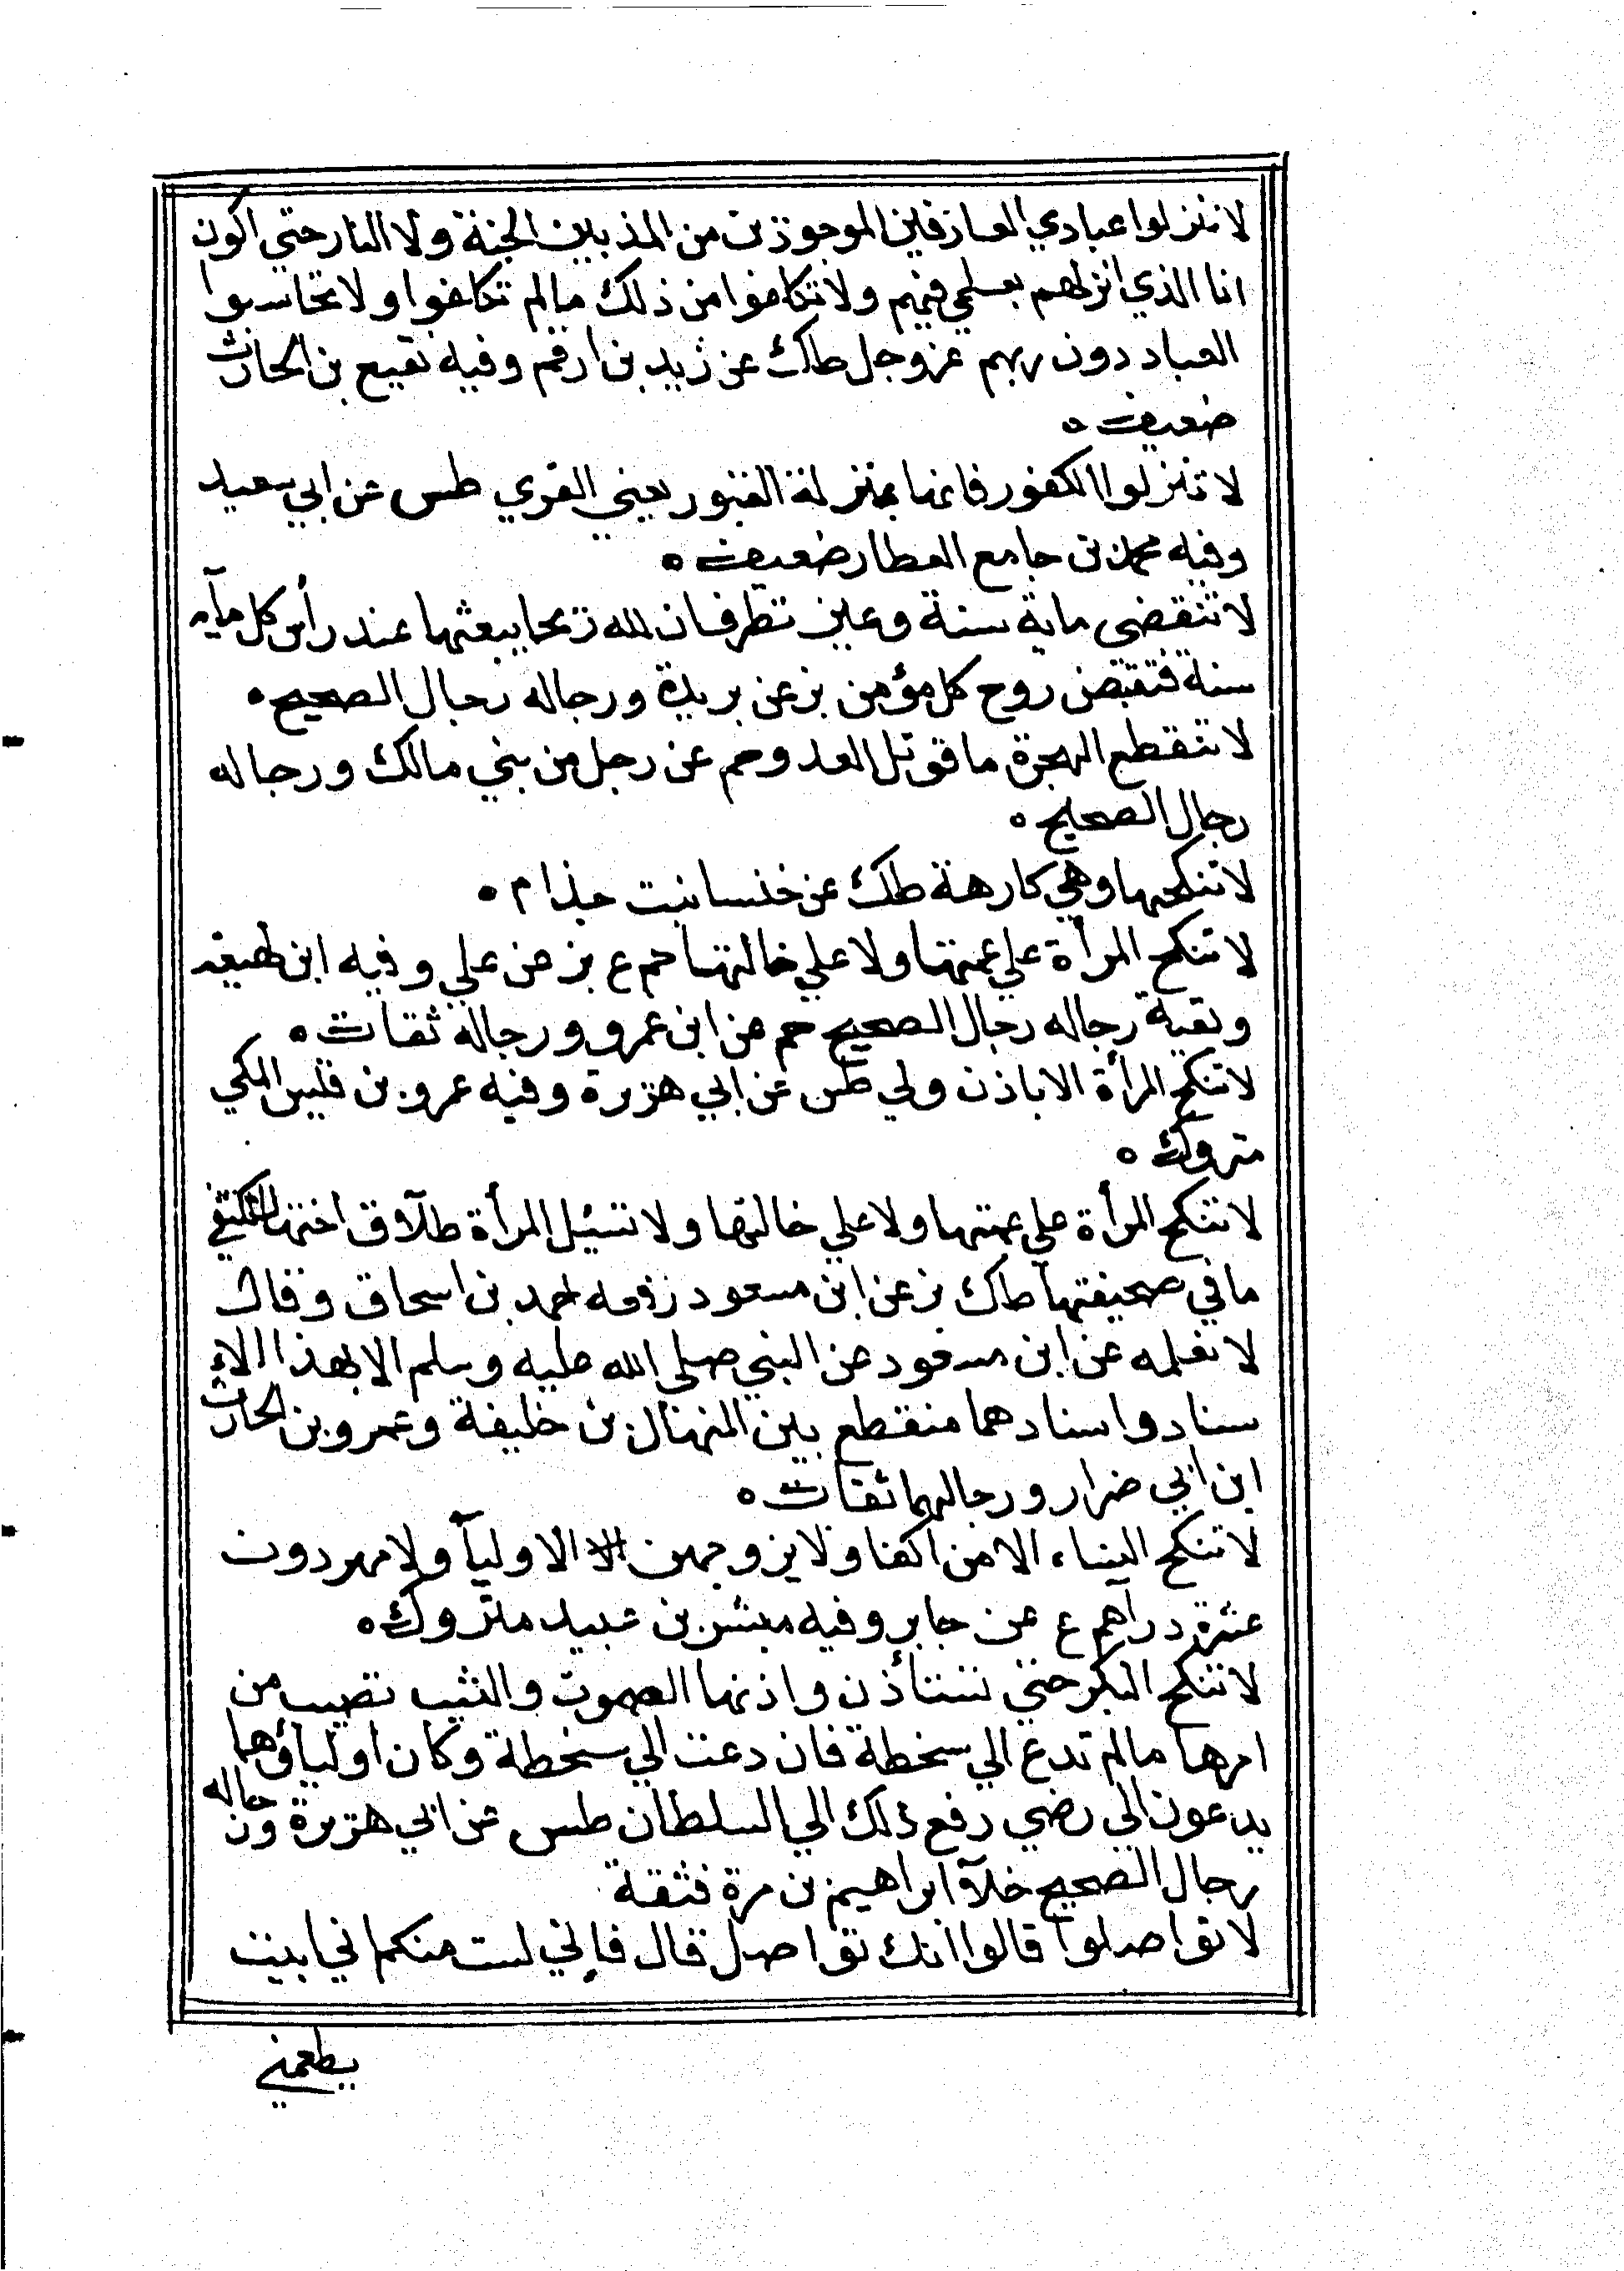 لا تنزلوا عبادي العارفين الموحدين من المذنبين الجنة ولا النار حتي اكون
انا الذي انزلهم بعلمي فيهم ولا تكلفوا من ذلك مالم تكلفوا ولا تحاسبوا
العباد دون ربهم عز وجل طك عن زيد بن ارقم وفيه نفيع بن الحارث
ضعيف ه
لا تنزلوا الكفور فانها بمنزلة القبور يعني القري طس عن ابي سعيد
وفيه محمد بن جامع العطار ضعيف ه
لا تنقضي ماية سنة وعين تطرف ان لله ريحا يبعثها عند رأس كل مآيه
سنة فتقبض روح كل مؤمن بز عن بريدة ورجاله رجال الصحيح ه
لا تنقطع الهجرة ما قوتل العدو حم عن رجل من بني مالك ورجاله
رجال الصحيح ه
لا تنكحها وهي كارهة طك عن خنسا بنت جذام ه
لا تنكح المرأة علي عمتها ولا علي خالتها حم ع بز عن علي وفيه ابن لهيعه
وبقية رجاله رجال الصحيح حم عن ابن عمرو ورجاله ثقات ه
لا تنكح المرأة الا باذن ولي طس عن ابي هريرة وفيه عمرو بن قيس المكي
متروك ه
لا تنكح المرأة علي عمتها ولا علي خالتها ولا تسئل المرأة طلآق اختها لتكتفي
ما في صحيفتها طك بز عن ابن مسعود رفعه احمد بن اسحاق وقال
لا نعلمه عن ابن مسعود عن النبي صلي الله عليه وسلم الا بهذا الا
سناد واسنادهما منقطع بين المنهال بن خليفة وعمرو بن الحارث
ابن ابي ضرار ورجالهما ثقات ه
لا تنكح النساء الا من اكفا ولا يزوجهن الا الاوليآ ولا مهر دون
عشرة درآهم ع عن جابر وفيه مبشر بن عبيد متروك ه
لا تنكح البكر حتي تستأذن واذنها الصموت والثيب تصيب من
امرها مالم تدع الي سخطة فان دعت الي سخطة وكان اولياؤهما
يدعون الي رضي رفع ذلك الي السلطان طس عن ابي هريرة ورجاله
رجال الصحيح خلآ ابراهيم بن مرة فثقة
لا تواصلوا قالوا انك تواصل قال فاني لست منكم اني ابيت
يطعمني